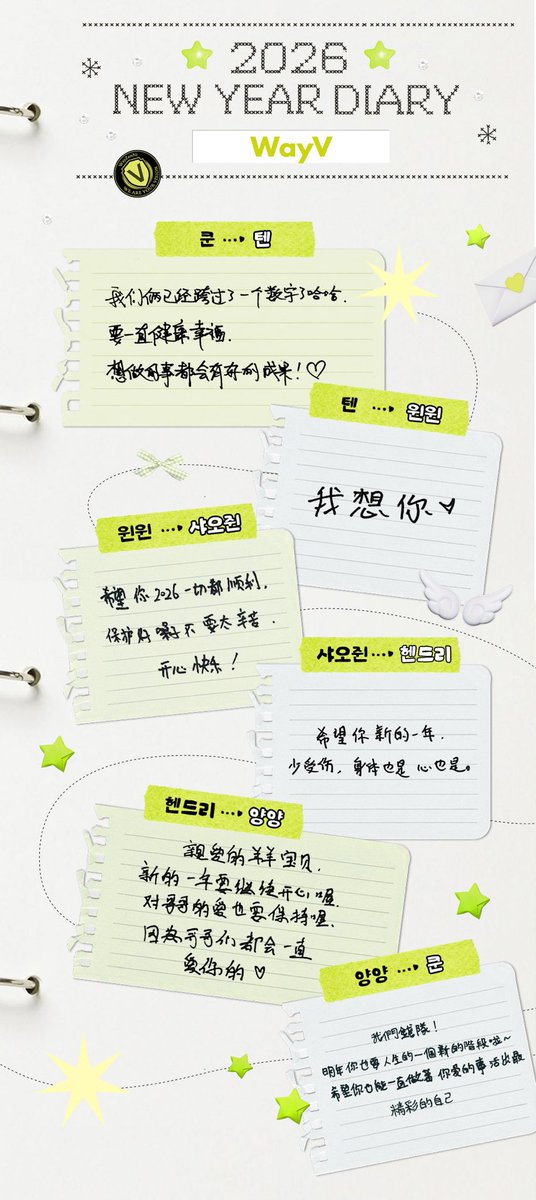 2026
NEW YEAR DIARY
WayV
V
쿤 ····▸ 텐
我们俩已经跨过了一个数字了哈哈.
要一直健康幸福.
想做的事都会有好的成果！♡
텐 ····▸ 윈윈
我想你♥
윈윈 ····▸ 샤오쥔
希望你2026一切都顺利.
保护好嗓子不要太辛苦.
开心快乐！
샤오쥔····▸ 헨드리
希望你新的一年.
少受伤，身体也是心也是。
헨드리 ····▸ 양양
親愛的羊羊宝贝.
新的一年要继续开心喔.
对哥哥的爱也要保持喔.
因為哥哥们都会一直
爱你的♡
양양 ····▸ 쿤
我們錕隊！
明年你也要人生的一個新的階段啦~
希望你也能一直做著你愛的事活出最
精彩的自己